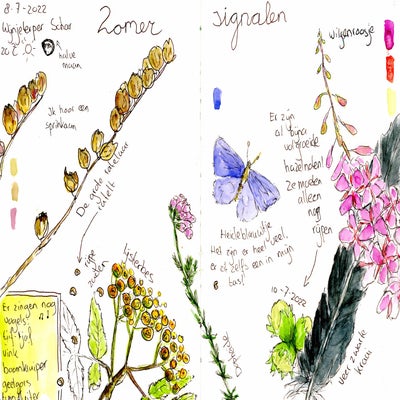 8-7-2022
Wijnjeterper Schar
20°C
halve
maan
Zomer
signalen
Ik hoor een
sprinkhaan
De grote ratelaar
ratelt
rijpe
zaden
lijsterbes
Er zingen nog
vogels!
tjif-tjaf
vink
boomkruiper
Dopheide
Heideblauwtje
Het zijn er heel veel.
er zit zelfs een in mijn
tas!
Er zijn
al bijna
volgroeide
hazelnoten!
Ze moeten
alleen
nog
rijpen
10-7-2022
Wilgenroosje
veer zwarte
kraai